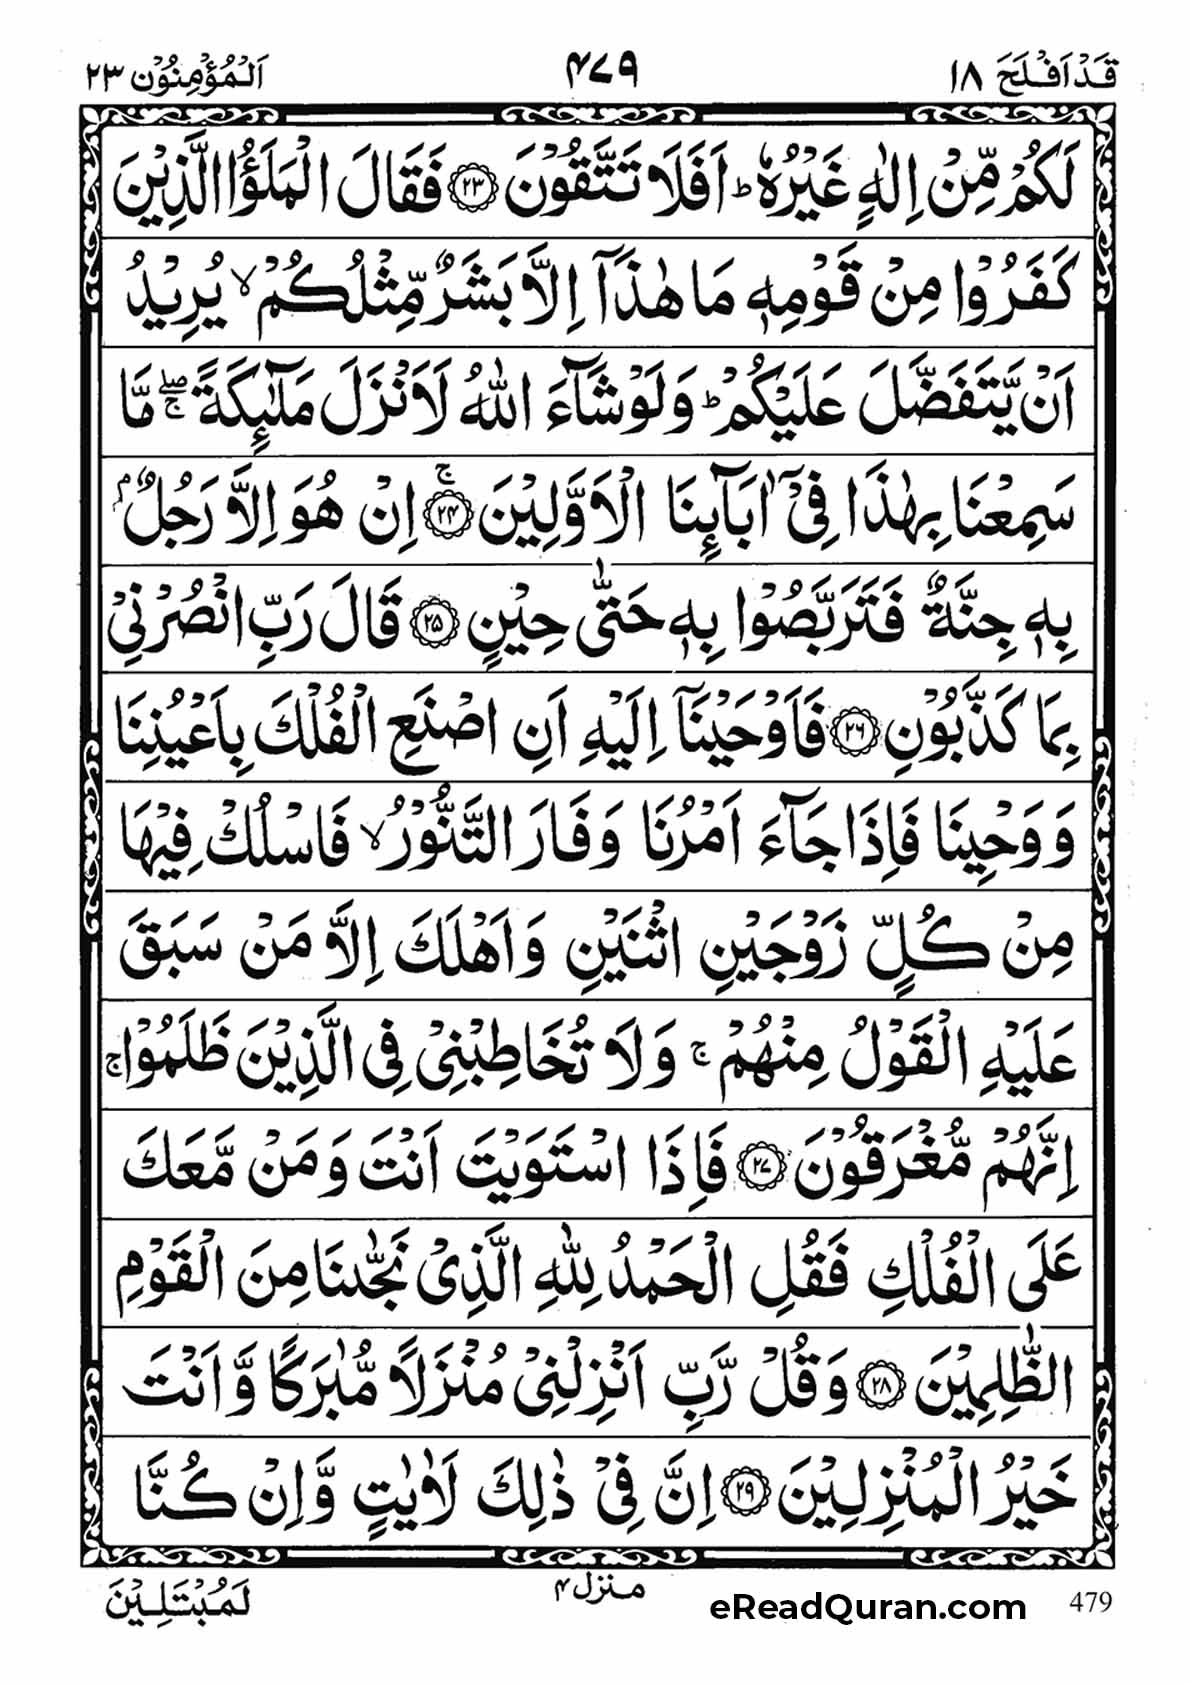 قَدْ اَفْلَحَ ١٨ ٤٧٩ اَلْمُؤْمِنُوْن ٢٣
لَكُمْ مِّنْ اِلٰهٍ غَيْرُهٗ ؕ اَفَلَا تَتَّقُوْنَ ﴿٢٣﴾ فَقَالَ الْمَلَؤُا الَّذِيْنَ
كَفَرُوْا مِنْ قَوْمِهٖ مَا هٰذَاۤ اِلَّا بَشَرٌ مِّثْلُكُمْ ۙ يُرِيْدُ
اَنْ يَّتَفَضَّلَ عَلَيْكُمْ ؕ وَلَوْ شَآءَ اللّٰهُ لَاَنْزَلَ مَلٰٓئِكَةً ۖۚ مَّا
سَمِعْنَا بِهٰذَا فِيْۤ اٰبَآئِنَا الْاَوَّلِيْنَ ﴿٢٤﴾ۚ اِنْ هُوَ اِلَّا رَجُلٌۢ
بِهٖ جِنَّةٌ فَتَرَبَّصُوْا بِهٖ حَتّٰى حِيْنٍ ﴿٢٥﴾ قَالَ رَبِّ انْصُرْنِيْ
بِمَا كَذَّبُوْنِ ﴿٢٦﴾ فَاَوْحَيْنَاۤ اِلَيْهِ اَنِ اصْنَعِ الْفُلْكَ بِاَعْيُنِنَا
وَوَحْيِنَا فَاِذَا جَآءَ اَمْرُنَا وَفَارَ التَّنُّوْرُ ۙ فَاسْلُكْ فِيْهَا
مِنْ كُلٍّ زَوْجَيْنِ اثْنَيْنِ وَاَهْلَكَ اِلَّا مَنْ سَبَقَ
عَلَيْهِ الْقَوْلُ مِنْهُمْ ۚ وَلَا تُخَاطِبْنِيْ فِي الَّذِيْنَ ظَلَمُوْا ۚ
اِنَّهُمْ مُّغْرَقُوْنَ ﴿٢٧﴾ فَاِذَا اسْتَوَيْتَ اَنْتَ وَمَنْ مَّعَكَ
عَلَى الْفُلْكِ فَقُلِ الْحَمْدُ لِلّٰهِ الَّذِيْ نَجّٰىنَا مِنَ الْقَوْمِ
الظّٰلِمِيْنَ ﴿٢٨﴾ وَقُلْ رَّبِّ اَنْزِلْنِيْ مُنْزَلًا مُّبٰرَكًا وَّاَنْتَ
خَيْرُ الْمُنْزِلِيْنَ ﴿٢٩﴾ اِنَّ فِيْ ذٰلِكَ لَاٰيٰتٍ وَّاِنْ كُنَّا
479 eReadQuran.com منزل ٤ لَمُبْتَلِيْنَ